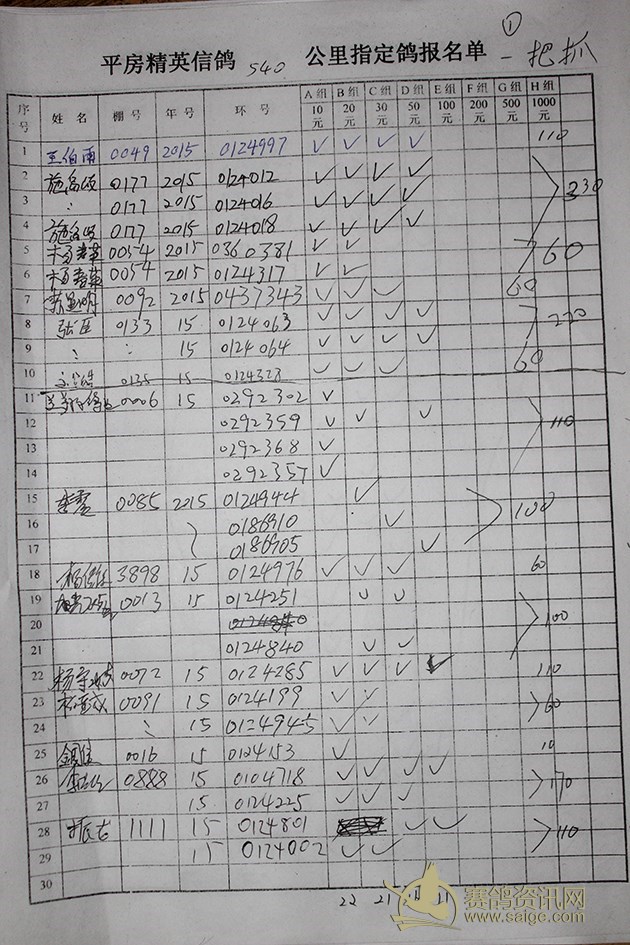 ①
平房精英信鸽 540 公里指定鸽报名单 一把抓
序号 姓名 棚号 年号 环号 A组10元 B组20元 C组30元 D组50元 E组100元 F组200元 G组500元 H组1000元
1 王伯雨 0049 2015 0124997 ✓ ✓ ✓ ✓ 110
2 0177 2015 0124012 ✓ ✓ ✓ ✓
3 0177 2015 0124016 ✓ ✓ ✓ ✓ 330
4 0177 2015 0124018 ✓ ✓ ✓ ✓
5 0054 2015 0360381 ✓ ✓ 60
6 0054 2015 0124317 ✓ ✓
7 0092 2015 0437343 ✓ ✓ ✓ 60
8 0133 15 0124063 ✓ ✓ ✓ ✓ 220
9 15 0124064 ✓ ✓ ✓ ✓
10 0135 15 0124328 ✓ ✓ ✓ 60
11 0006 15 0292302 ✓
12 0292359 ✓ ✓ ✓ 110
13 0292368 ✓
14 0292357 ✓
15 0085 2015 0124944 ✓ 100
16 0186910 ✓
17 0186905 ✓
18 3898 15 0124976 ✓ ✓ ✓ 60
19 0013 15 0124251 ✓ ✓
20 100
21 0124840 ✓ ✓
22 0072 15 0124285 ✓ ✓ ✓ ✓ 110
23 0091 15 0124199 ✓ ✓ 60
24 15 0124945 ✓ ✓
25 0016 15 0124153 ✓ 10
26 0888 15 0104718 ✓ ✓ ✓ ✓ 170
27 15 0124225 ✓ ✓ ✓
28 1111 15 0124801 ✓ ✓ 110
29 15 0124002 ✓ ✓
30
22 21 11
赛鸽资讯网
www.saige.com